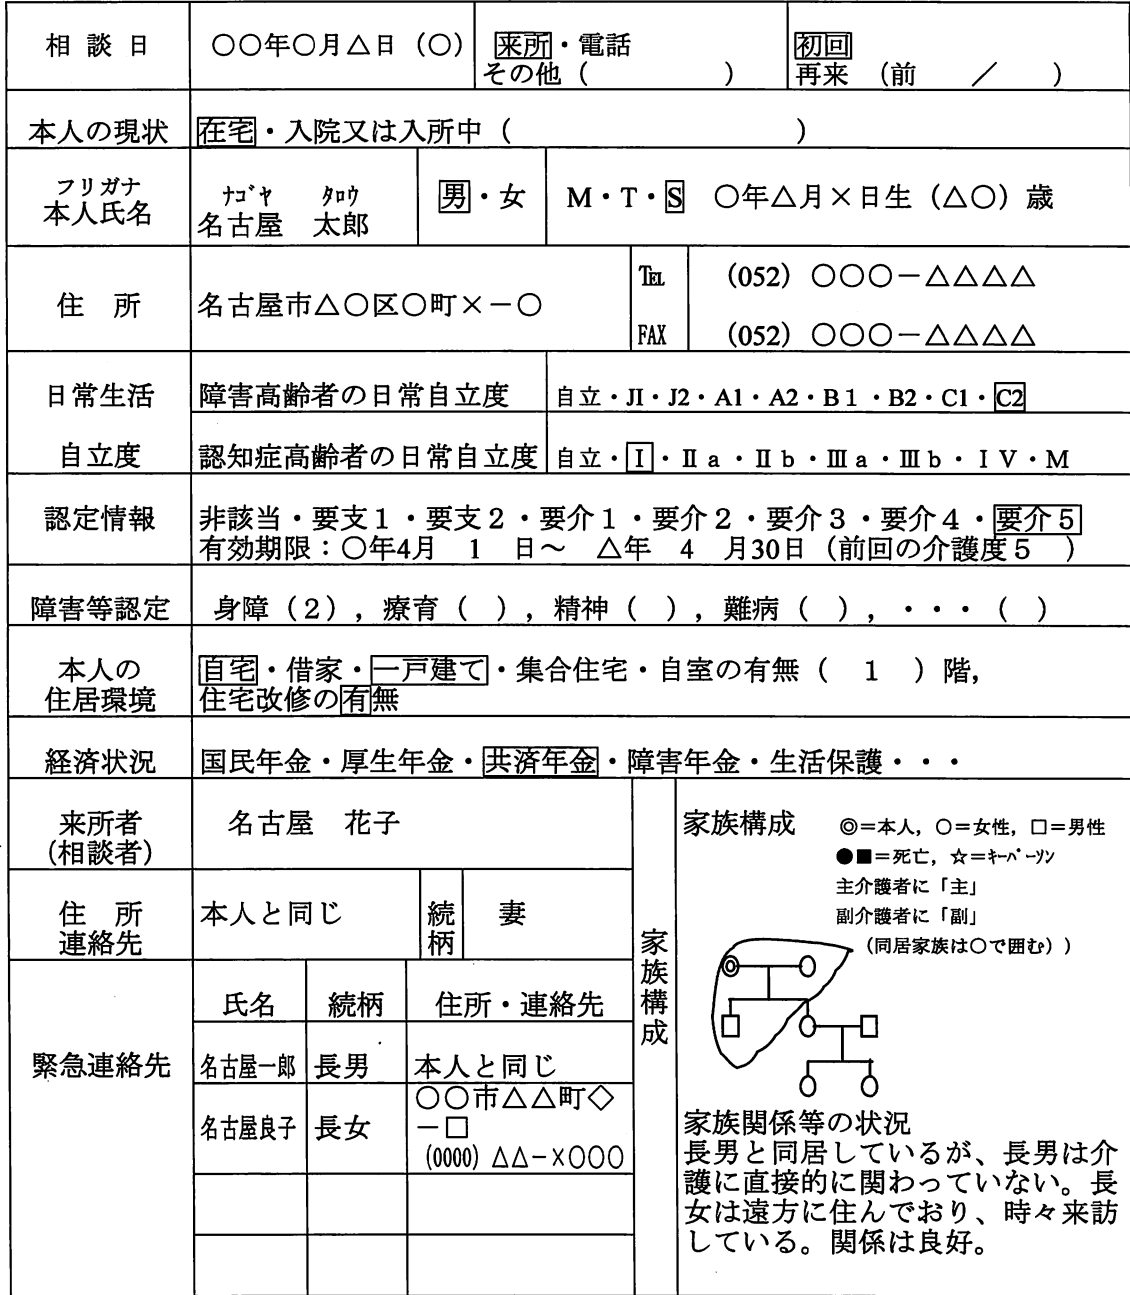 相談日 〇〇年〇月△日（〇） 来所・電話 初回
その他（　　　　　） 再来（前　　／　　）
本人の現状 在宅・入院又は入所中（　　　　　　　　　　）
フリガナ ﾅｺﾞﾔ ﾀﾛｳ
本人氏名 名古屋　太郎 男・女 M・T・S　〇年△月×日生（△〇）歳
住　所 名古屋市△〇区〇町×－〇
TEL （052）〇〇〇－△△△△
FAX （052）〇〇〇－△△△△
日常生活 障害高齢者の日常自立度 自立・JI・J2・A1・A2・B１・B2・C1・C2
自立度 認知症高齢者の日常自立度 自立・Ⅰ・Ⅱａ・Ⅱｂ・Ⅲａ・Ⅲｂ・ＩＶ・Ｍ
認定情報 非該当・要支１・要支２・要介１・要介２・要介３・要介４・要介５
有効期限：〇年4月　1　日～　△年　4　月30日（前回の介護度５　）
障害等認定 身障（２），療育（　），精神（　），難病（　），・・・（　）
本人の
住居環境
自宅・借家・一戸建て・集合住宅・自室の有無（　１　）階，
住宅改修の有無
経済状況 国民年金・厚生年金・共済年金・障害年金・生活保護・・・
来所者
(相談者)
名古屋　花子
住　所
連絡先
本人と同じ
続柄
妻
緊急連絡先
氏名 続柄 住所・連絡先
名古屋一郎 長男 本人と同じ
名古屋良子 長女 〇〇市△△町◇
－□
(0000) △△－×〇〇〇
家族構成
家族構成 ◎＝本人，〇＝女性，□＝男性
●■＝死亡，☆＝ｷｰﾊﾟｰｿﾝ
主介護者に「主」
副介護者に「副」
（同居家族は〇で囲む））
家族関係等の状況
長男と同居しているが、長男は介
護に直接的に関わっていない。長
女は遠方に住んでおり、時々来訪
している。関係は良好。